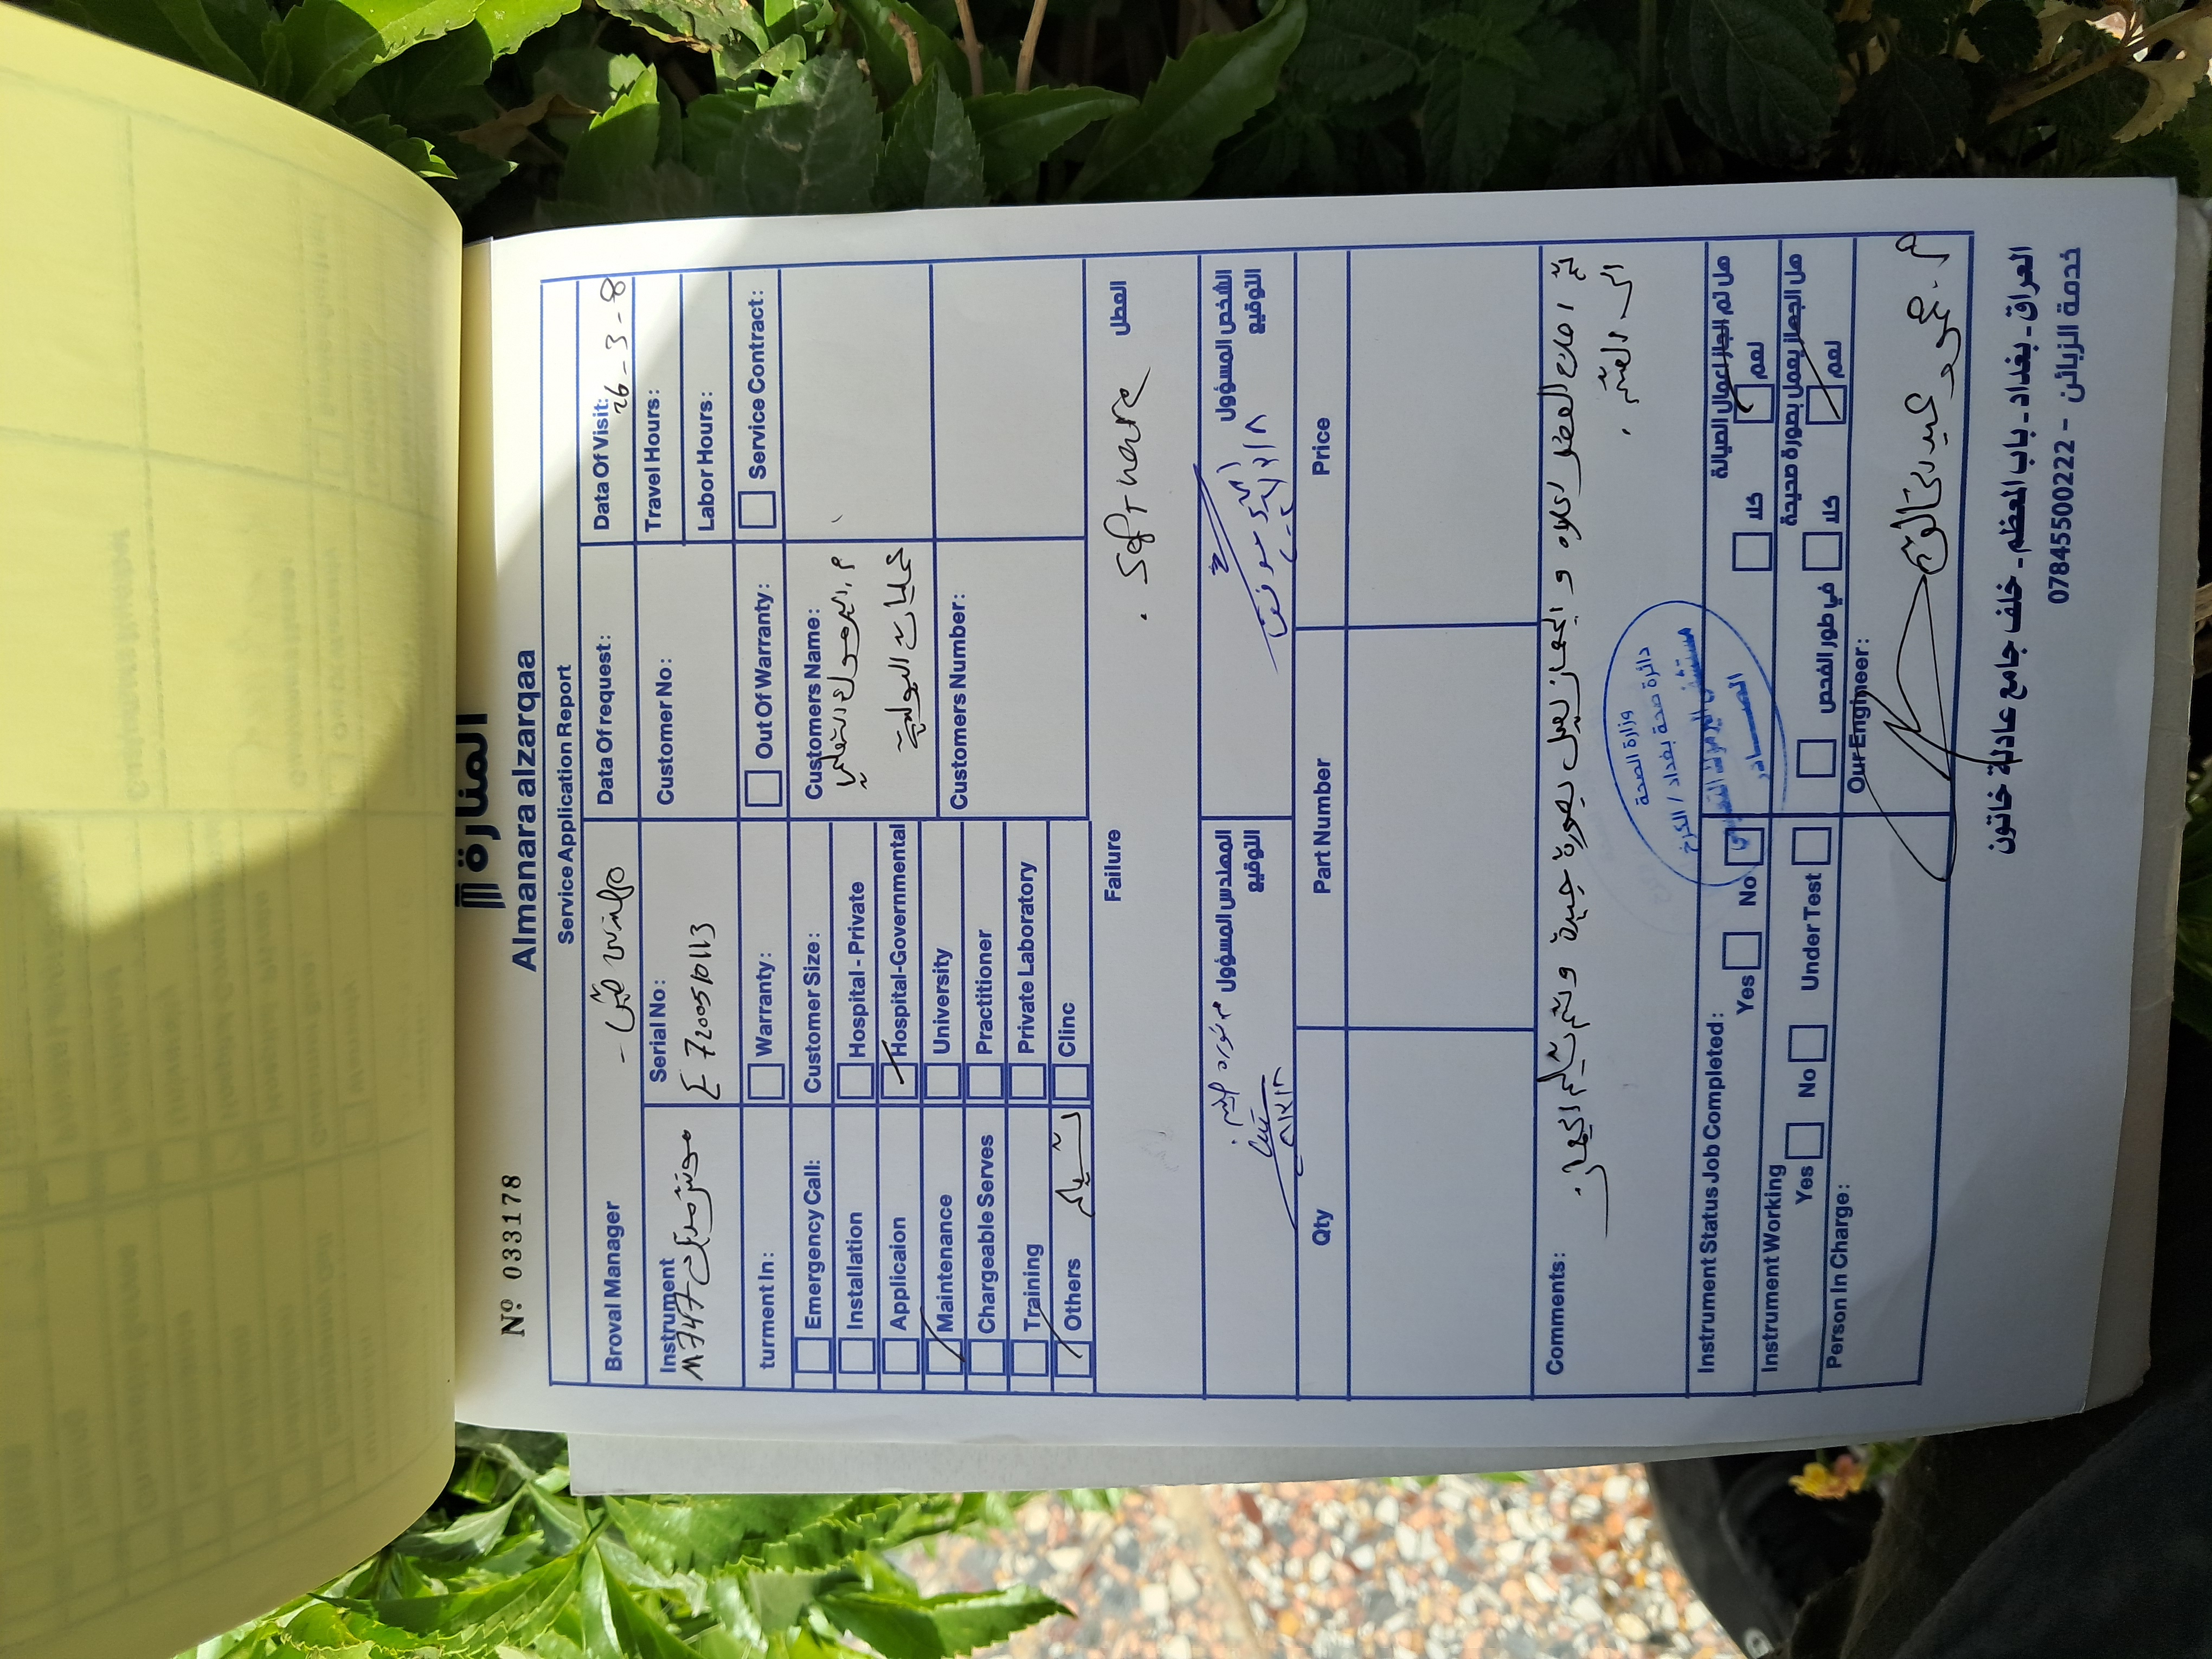 Nº 033178
المنارة
Almanara alzarqaa
Service Application Report
Broval Manager
Data Of request:
Data Of Visit:
26-3-8
Instrument
Serial No:
Customer No:
Travel Hours:
Labor Hours:
M747
E72005/0113
turment In:
Warranty:
Out Of Warranty:
Service Contract:
Emergency Call:
Customer Size:
Customers Name:
Installation
Hospital - Private
م. اليرموك التعليمي
Applicaion
Hospital-Governmental
عمليات البولية
Maintenance
University
Customers Number:
Chargeable Serves
Practitioner
Training
Private Laboratory
Others
Clinc
Failure
العطل
Software
المهندس المسؤول
التوقيع
الشخص المسؤول
التوقيع
Qty
Part Number
Price
Comments:
تم اصلاح العطل اعلاه و الجهاز يعمل بصورة جيدة وتم تسليم الجهاز
الى
وزارة الصحة
دائرة صحة بغداد / الكرخ
مستشفى اليرموك التعليمي
الصادر
Instrument Status Job Completed:
Yes
No
هل تم انجاز اعمال الصيانة
نعم
كلا
Instrument Working
Yes
No
Under Test
هل الجهاز يعمل بصورة صحيحة
نعم
كلا
في طور الفحص
Person In Charge:
Our Engineer:
العراق - بغداد - باب المعظم - خلف جامع عادلة خاتون
خدمة الزبائن - 07845500222